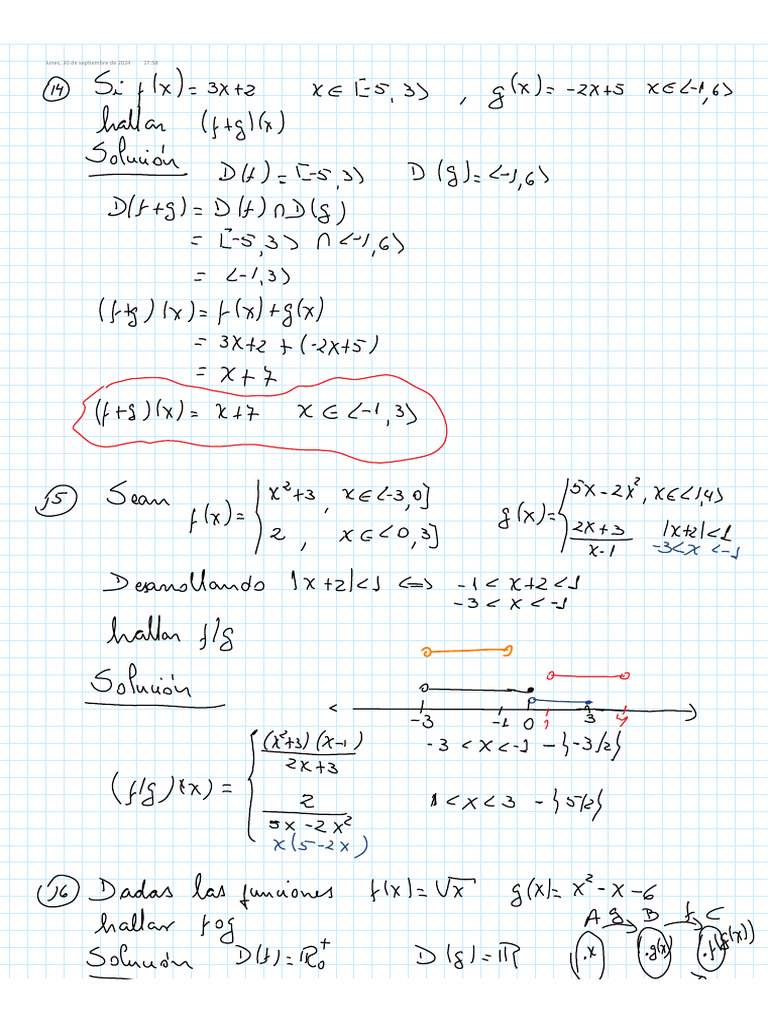 lunes, 30 de septiembre de 2024 17:58
14 Si f(x) = 3x+2 x ∈ [-5, 3> , g(x) = -2x+5 x∈<-1,6>
hallar (f+g)(x)
Solución D(f) = [-5,3> D(g) = <-1,6>
D(f+g) = D(f) ∩ D(g)
= [-5,3> ∩ <-1,6>
= <-1,3>
(f+g)(x) = f(x)+g(x)
= 3x+2 + (-2x+5)
= x+7
(f+g)(x) = x+7 x ∈ <-1,3>
15 Sean f(x) = { x²+3 , x∈<-3,0] g(x) = { 5x-2x², x∈<1,4>
2 , x∈<0,3] (2x+3)/(x-1) |x+2|<1
-3<x<-1
Desarrollando |x+2|<1 <=> -1 < x+2 < 1
-3 < x < -1
hallar f/g
Solución
-3 -1 0 1 3 4
(f/g)(x) = { (x²+3)(x-1)/(2x+3) -3 < x < -1 - {-3/2}
2/(5x-2x²) 1 < x < 3 - {5/2}
x(5-2x)
16 Dadas las funciones f(x) = √x g(x) = x²-x-6
hallar fog
A g B f C
Solución D(f) = ℝ₀⁺ D(g) = ℝ .x .g(x) .f(g(x))